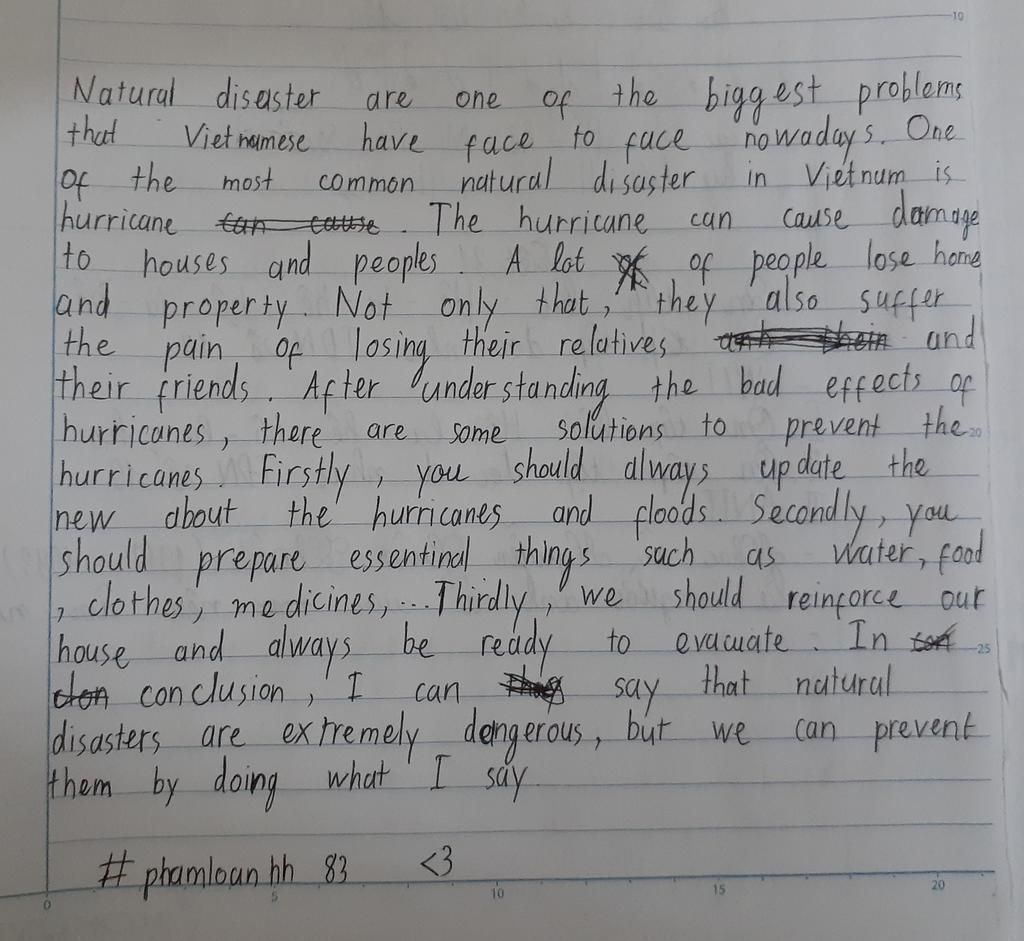 10
Natural disaster are one of the biggest problems
that Vietnamese have face to face nowadays. One
of the most common natural disaster in Vietnam is
hurricane can cause . The hurricane can cause damage
to houses and peoples. A lot of people lose home
and property. Not only that, they also suffer
the pain of losing their relatives and
their friends. After understanding the bad effects of
hurricanes, there are some solutions to prevent the 20
hurricanes. Firstly, you should always update the
new about the hurricanes and floods. Secondly, you
should prepare essentinal things such as water, food
, clothes, medicines,... Thirdly, we should reinforce our
house and always be ready to evacuate. In 25
conclusion, I can say that natural
disasters are extremely dangerous, but we can prevent
them by doing what I say
# phamloan hh 83 <3
0 5 10 15 20